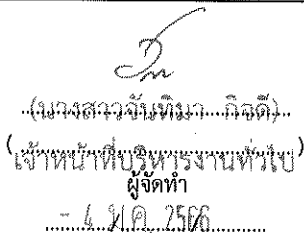 (นางสาวจันทิมา กิจดี)
(เจ้าหน้าที่บริหารงานทั่วไป)
ผู้จัดทำ
- 4 ม.ค. 2566